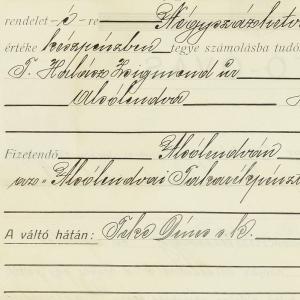 rendelet - é - re Négyszázhetv
értéke készpénzben tegye számolásba tudó
T. Halász Zsigmond úr
Alsólendva
Fizetendő Alsólendván
az "Alsólendvai Takarékpénzt
A váltó hátán: Teke Dénes s.k.